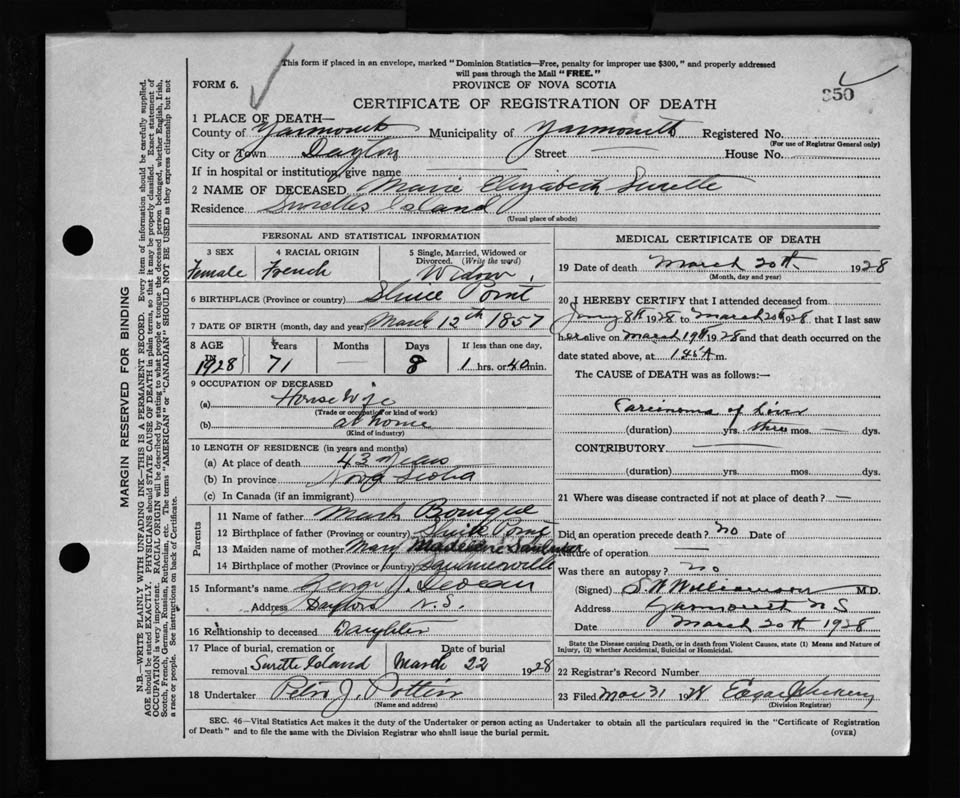 This form if placed in an envelope, marked "Dominion Statistics—Free, penalty for improper use $300," and properly addressed
will pass through the Mail "FREE."
FORM 6.
PROVINCE OF NOVA SCOTIA
350
CERTIFICATE OF REGISTRATION OF DEATH
1 PLACE OF DEATH—
County of Yarmouth Municipality of Yarmouth Registered No.
(For use of Registrar General only)
City or Town Dayton Street — House No.
If in hospital or institution, give name —
2 NAME OF DECEASED Marie Elizabeth Surette
Residence Surettes Island
(Usual place of abode)
PERSONAL AND STATISTICAL INFORMATION
3 SEX Female
4 RACIAL ORIGIN French
5 Single, Married, Widowed or Divorced. (Write the word) Widow
6 BIRTHPLACE (Province or country) Sluice Point
7 DATE OF BIRTH (month, day and year) March 12th 1857
8 AGE Years Months Days If less than one day,
1928 71 8 1 hrs. or 40 min.
9 OCCUPATION OF DECEASED
(a) House Wife
(Trade or occupation or kind of work)
(b) at home
(Kind of industry)
10 LENGTH OF RESIDENCE (in years and months)
(a) At place of death 43 Years
(b) In province Nova Scotia
(c) In Canada (if an immigrant)
Parents
11 Name of father Mark Bourque
12 Birthplace of father (Province or country) Point
13 Maiden name of mother Mary Madeleine Saulnier
14 Birthplace of mother (Province or country) Saulnierville
15 Informant's name George J. Deveau
Address Dayton N.S.
16 Relationship to deceased Daughter
17 Place of burial, cremation or removal Surette Island
Date of burial March 22 1928
18 Undertaker Peter J. Pottier
(Name and address)
MEDICAL CERTIFICATE OF DEATH
19 Date of death March 20th 1928
(Month, day and year)
20 I HEREBY CERTIFY that I attended deceased from
8th 1928 to March 20th 1928 that I last saw
her alive on March 19th 1928 and that death occurred on the
date stated above, at A m.
The CAUSE of DEATH was as follows:—
Carcinoma of Liver
(duration) yrs. three mos. — dys.
CONTRIBUTORY —
(duration) yrs. mos. dys.
21 Where was disease contracted if not at place of death? —
Did an operation precede death? no Date of
Nature of operation —
Was there an autopsy? no
(Signed) S. W. Williamson M.D.
Address Yarmouth N S
Date March 20th 1928
State the Disease causing Death, or in death from Violent Causes, state (1) Means and Nature of
Injury, (2) whether Accidental, Suicidal or Homicidal.
22 Registrar's Record Number
23 Filed Mar 31 1928 Edgar
(Division Registrar)
SEC. 46—Vital Statistics Act makes it the duty of the Undertaker or person acting as Undertaker to obtain all the particulars required in the "Certificate of Registration
of Death" and to file the same with the Division Registrar who shall issue the burial permit.
(OVER)
MARGIN RESERVED FOR BINDING
N.B.—WRITE PLAINLY WITH UNFADING INK—THIS IS A PERMANENT RECORD. Every item of information should be carefully supplied.
AGE should be stated EXACTLY. PHYSICIANS should STATE CAUSE OF DEATH in plain terms, so that it may be properly classified. Exact statement of
OCCUPATION is very important. RACIAL ORIGIN will be described by stating to what people or tongue the deceased person belonged, whether English, Irish,
Scotch, French, German, Russian, Ruthenian, etc. The terms "AMERICAN" or "CANADIAN" SHOULD NOT BE USED as they express citizenship but not
a race or people. See instructions on back of Certificate.